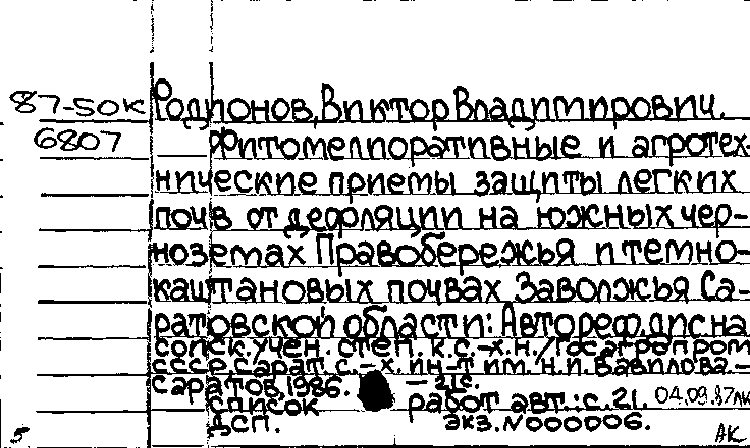 87-50к Родионов, Виктор Владимирович.
6807 Фитомелиоративные и агротех-
нические приемы защиты легких
почв от дефляции на южных чер-
ноземах Правобережья и темно-
каштановых почвах Заволжья Са-
ратовской области: Автореф. дис на
соиск. учен. степ. к.с.-х.н./Госагропром
СССР, Сарат. с.-х. ин-т им. Н.И. Вавилова.-
Саратов, 1986. - 21с.
Список работ авт.: с. 21. 04.09.87
ДСП. Экз. N000006.
5 АК